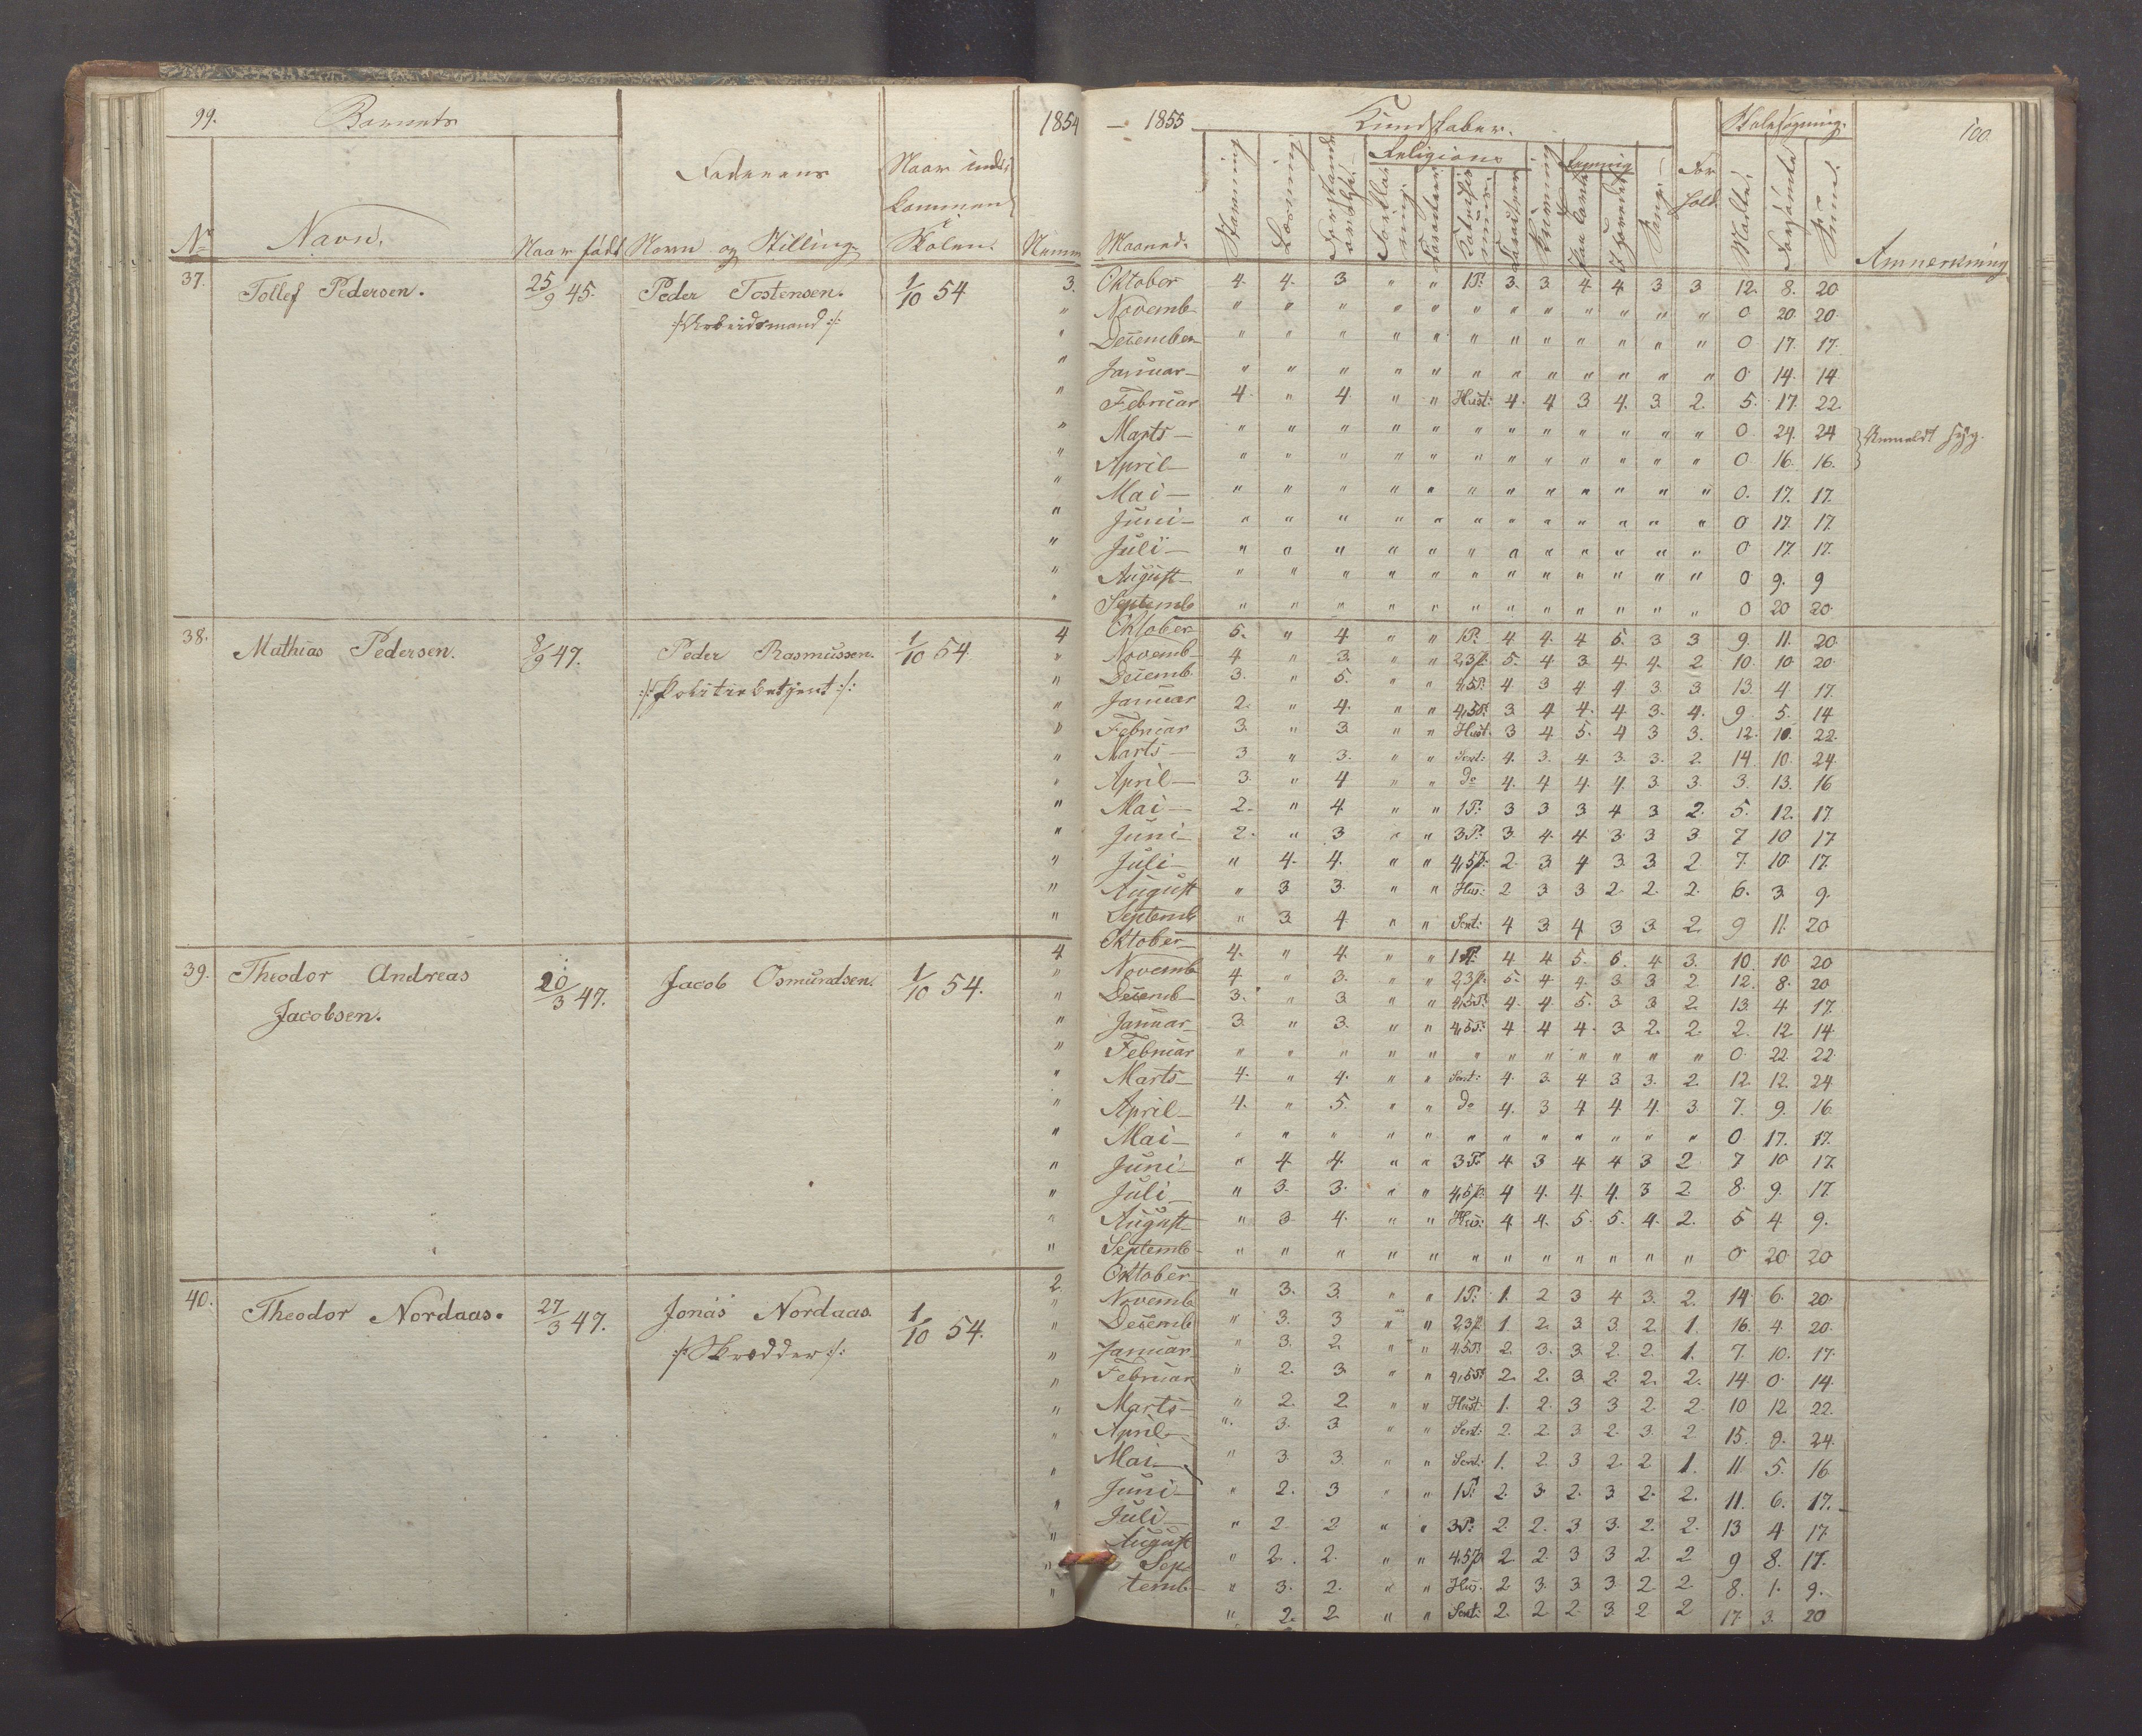 99. Barnets 1854 — 1855 Kundskaber. Skolesøgning. 100.
Faderens Naar ind- Religions Regning For
kommen i hold.
No Navn. Naar født Navn og Stilling Skolen. Numm Maaned. Stavning Læsning Sang. Mødte. Forsømte Sum. Anmærkning
37. Tollef Pedersen. 25/9 45. Peder Tostensen. 1/10 54 3. Oktober 4. 4. 3 " " 1P: 3. 3 4 4 3 3 12. 8. 20
:/:Arbeidsmand:/: " Novemb. " " " " " " " " " " " " 0 20. 20.
" Desember " " " " " " " " " " " " 0 17. 17.
" Januar " " " " " " " " " " " " 0 14. 14
" Februar 4 " 4. " " Hust: 4. 4 3 4. 3. 2. 5. 17. 22.
" Marts " " " " " " " " " " " " 0. 24. 24 } Anmeldt syg.
" April " " " " " " " " " " " " 0. 16. 16.
" Mai " " " " " " " " " " " " 0. 17. 17.
" Juni " " " " " " " " " " " " 0 17. 17.
" Juli " " " " " " " " " " " " 0 17. 17.
" August " " " " " " " " " " " " 0 9. 9
" Septemb " " " " " " " " " " " " 0 20 20.
38. Mathias Pedersen. 8/9 47. Peder Rasmussen. 1/10 54. 4 Oktober 5. " 4 " " 1P: 4 4. 4 5. 3 3 9. 11. 20.
:/:Politiebetjent:/: " Novemb 4 " 3. " " 2,3p. 5. 4 3 4 4. 2 10. 10. 20.
" Desemb. 3. " 5. " " 4,5P. 4. 3 4 4 3. 3. 13. 4 17.
" Januar 2. " 4. " " 4,5P. 3 4 4. 4 3. 4. 9. 5. 14
" Februar 3. " 3. " " Hust. 3 4 5. 4 3 3. 12. 10. 22.
" Marts 3 " 3. " " Sent: 4. 3. 4. 3. 3. 2. 14. 10. 24.
" April 3. " 4 " " do 4. 4 4. 4. 3. 3. 3. 13. 16
" Mai 2. " 4. " " 1P: 3 3 3 4 3 2. 5. 12. 17.
" Juni 2. " 3 " " 3P. 3. 4. 4. 3. 3 3. 7 10 17
" Juli " 4. 4. " " 4,5p. 2 3 4 3 3 2 7. 10. 17.
" August " 3 3. " " Hus: 2 3 3 2. 2. 2. 6. 3. 9.
" Septemb " 3. 4. " " Sent: 4 3 4 3 3. 2. 9 11. 20
39. Theodor Andreas 20/3 47. Jacob Osmundsen. 1/10 54. 4. Oktober 4. " 4. " " 1P. 4 4 5. 5. 4 3. 10. 10 20
Jacobsen. " Novemb 4 " 3. " " 2,3p. 5. 4 4. 3 3 2. 12. 8. 20
" Desemb 3. " 3 " " 4,5P. 4. 4 5. 3 3. 2 13. 4 17.
" Januar 3. " 3. " " 4,5P: 4 4 4. 3. 2. 2. 2. 12. 14
" Februar " " " " " " " " " " " " 0. 22. 22.
" Marts 4. " 4. " " Sent: 4. 3. 4 3 3. 2. 12. 12. 24
" April 4. " 5. " " do 4. 3 4 4 4. 3. 7. 9. 16.
" Mai " " " " " " " " " " " " 0. 17. 17.
" Juni " 4 4. " " 3P. 4 3 4 4 3 2 7 10 17.
" Juli " 3. 3. " " 4,5p. 4 4. 4. 4. 3 2. 8. 9. 17.
" August " 3. 4. " " Hus: 4 4. 5. 5. 4. 2. 5 4 9.
" Septemb " " " " " " " " " " " " 0 20 20
40. Theodor Nordaas. 27/3 47. Jonas Nordaas. 1/10 54. 2. Oktober " 3. 3. " " 1P: 1. 2 3 4 3. 2. 14 6. 20.
:/:Skrædder:/: " Novemb " 3. 3 " " 2,3p. 1. 2. 3 3. 2 1. 16. 4. 20.
" Desemb " 3. 2. " " 4,5P. 2. 3. 3. 2 2. 1. 7. 10. 17.
" Januar " 2. 3. " " 4,5P. 2. 2. 3. 2. 2. 2. 14. 0. 14.
" Februar " 2. 2. " " Hust: 1. 2. 3 3 2. 2. 10 12 22.
" Marts " 3. 3 " " Sent: 2. 2. 3. 2. 3. 2 15. 9. 24.
" April " 3. 3. " " Sent: 1. 2. 3 2. 2 1. 11. 5. 16.
" Mai " 2. 3 " " 1P. 2. 3. 2. 3 2. 2. 11. 6. 17.
" Juni " 2. 2 " " 3P: 2. 2. 3. 3. 2. 2. 13 4. 17.
" Juli " 2. 2. " " 4,5p 2 2. 3 3 2. 2 9 8. 17.
" August " 3. 2. " " Hus. 2. 3. 3. 3. 2. 2. 8. 1. 9.
" Sep- temb " 2. 2. " " Sent: 2. 2. 2. 3. 2 2 17. 3. 20